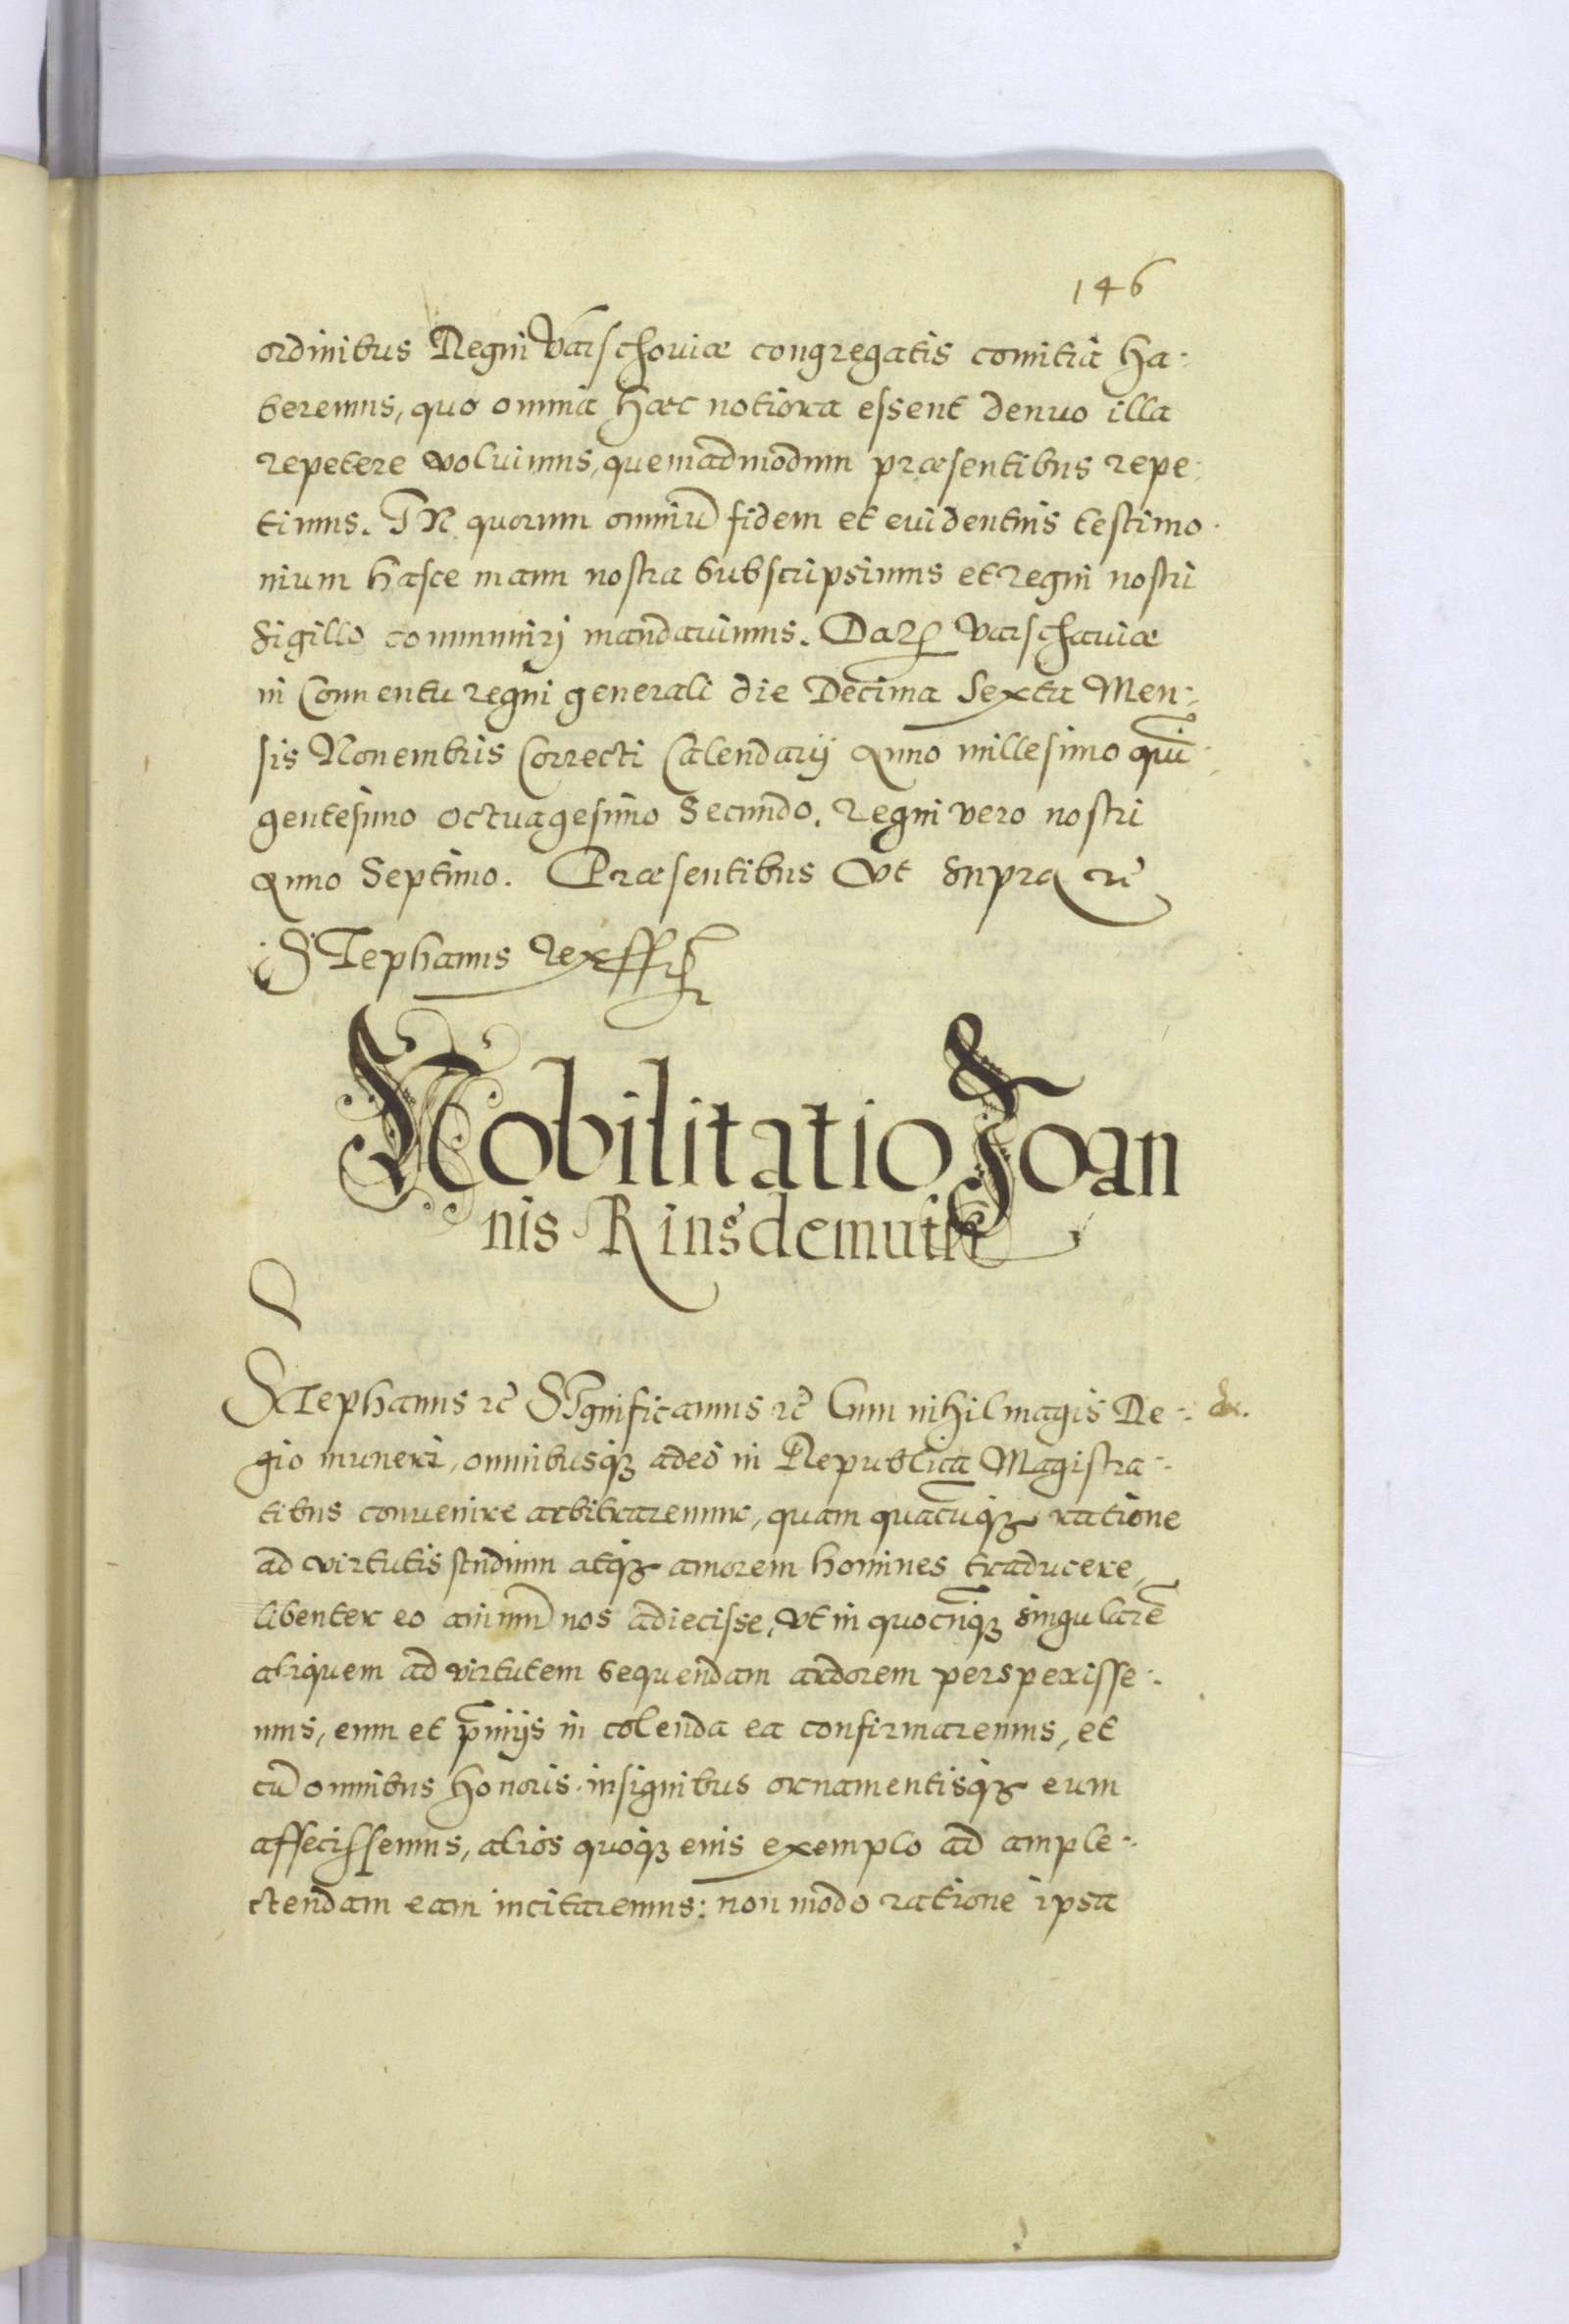 146
ordinibus Regni Varschouiæ congregatis comitia ha-
beremus, quo omnia hæc notiora essent denuo illa
repetere voluimus, quemadmodum præsentibus repe-
timus. IN quorum omniũ fidem et euidentius testimo-
nium hasce manu nostra subscripsimus et regni nostri
sigillo communirj mandauimus. Dat Varschauiæ
in Conuentu regni generali die Decima Sexta Men-
sis Nouembris Correcti Calendarij Anno millesimo quin-
gentesimo octuagesimo Secundo. Regni vero nostri
Anno Septimo. Præsentibus Vt supra etc̃
STephanus Rex ssr
Nobilitatio Joan
nis Rinsdemutk
STephanus etc̃ SIgnificamus etc̃ Cum nihil magis Re- &.
gio muneri, omnibusqȝ adeo in Republica Magistra-
tibus conuenire arbitraremur, quam quacũqȝ ratione
ad virtutis studium atqȝ amorem homines traducere,
libenter eo animũ nos adiecisse, vt in quocũqȝ singularẽ
aliquem ad virtutem sequendam ardorem perspexisse-
mus, eum et p̃mijs in colenda ea confirmaremus, et
cũ omnibus honoris insignibus ornamentisqȝ eum
affecissemus, alios quoqȝ eius exemplo ad ample-
ctendam eam incitaremus: non modo ratione ipsa